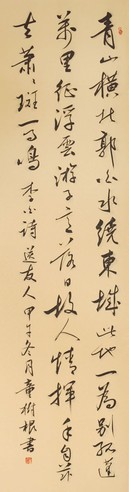 青山橫北郭白水繞東城此地一為別孤蓬
萬里征浮雲游子意落日故人情揮手自茲
去蕭〻斑馬鳴 李白詩送友人甲午冬月童樹根書